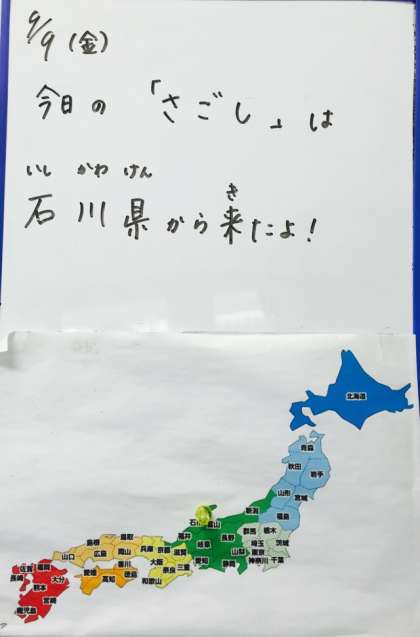 9/9(金)
今日の「さごし」は
いし かわ けん
石川県から来たよ!
き
北海道
青森
秋田
岩手
山形
宮城
福島
新潟
栃木
群馬
茨城
埼玉
東京
千葉
神奈川
長野
山梨
静岡
岐阜
愛知
福井
滋賀
三重
京都
兵庫
大阪
奈良
和歌山
鳥取
島根
岡山
広島
山口
香川
徳島
愛媛
高知
福岡
佐賀
長崎
大分
熊本
宮崎
鹿児島